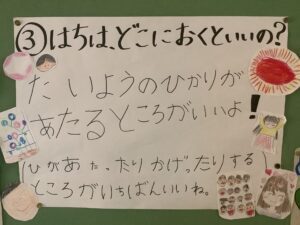 ③はちは、どこにおくといいの?
たいようのひかりが
あたるところがいいよ!
(ひがあたったりかげったりする
ところがいちばんいいね。